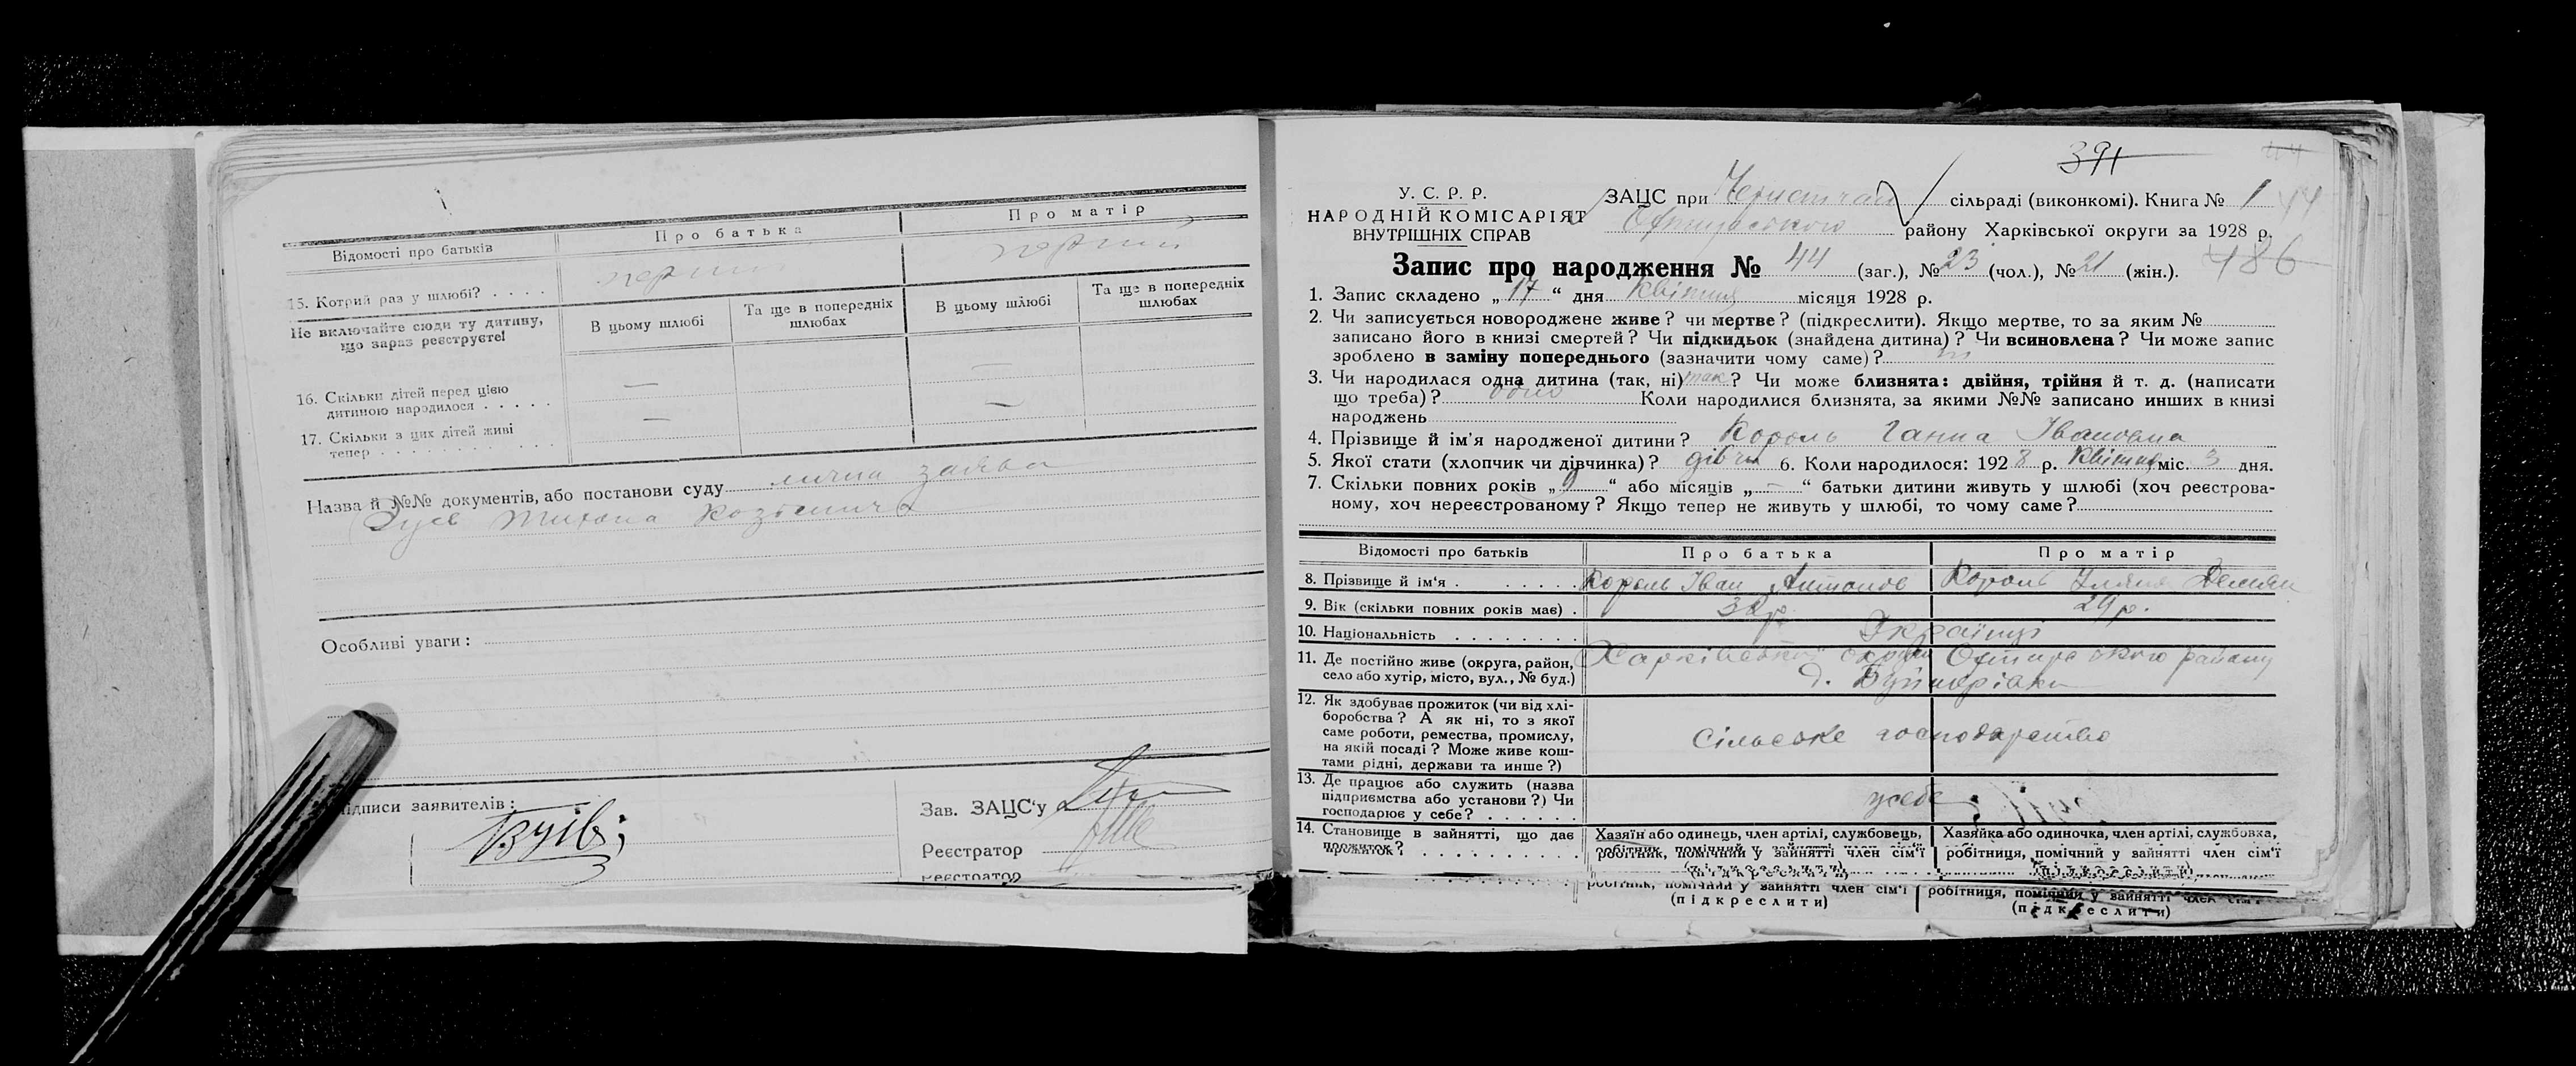 Відомості про батьків
Про батька
Про матір
15. Котрий раз у шлюбі? . . . .
перший
перший
Не включайте сюди ту дитину,
що зараз реєструєте!
В цьому шлюбі
Та ще в попередніх
шлюбах
В цьому шлюбі
Та ще в попередніх
шлюбах
16. Скільки дітей перед цією
дитиною народилося . . . . .
—
—
17. Скільки з цих дітей живі
тепер . . . . . . . . . .
—
—
Назва й №№ документів, або постанови суду лична заява
Зуєв
Особливі уваги:
підписи заявителів:
Зав. ЗАЦС'у
Реєстратор
Реєстратор
391
44
У. С. Р. Р.
НАРОДНІЙ КОМІСАРІЯТ
ВНУТРІШНІХ СПРАВ
ЗАЦС при сільраді (виконкомі). Книга № 1 44
району Харківської округи за 1928 р.
486
Запис про народження № 44 (заг.), № 23 (чол.), № 21 (жін.).
1. Запис складено „ 17 “ дня квітня місяця 1928 р.
2. Чи записується новороджене живе? чи мертве? (підкреслити). Якщо мертве, то за яким №
записано його в книзі смертей? Чи підкидьок (знайдена дитина)? Чи всиновлена? Чи може запис
зроблено в заміну попереднього (зазначити чому саме)?
3. Чи народилася одна дитина (так, ні) так? Чи може близнята: двійня, трійня й т. д. (написати
що треба)? одно Коли народилися близнята, за якими №№ записано инших в книзі
народжень
4. Прізвище й ім'я народженої дитини? Король Ганна Івановна
5. Якої стати (хлопчик чи дівчинка)? дівч 6. Коли народилося: 1928 р. квітня міс. 3 дня.
7. Скільки повних років „ 9 “ або місяців „ — “ батьки дитини живуть у шлюбі (хоч реєстрова-
ному, хоч нереєстрованому? Якщо тепер не живуть у шлюбі, то чому саме?
Відомості про батьків
Про батька
Про матір
8. Прізвище й ім'я . . . . . .
Король Іван Антонов
Король Уляна Демян
9. Вік (скільки повних років має) .
29 р.
10. Національність . . . . . . . .
Українці
11. Де постійно живе (округа, район,
село або хутір, місто, вул., № буд.)
Харківської округи Охтирського району
12. Як здобуває прожиток (чи від хлі-
боробства? А як ні, то з якої
саме роботи, ремества, промислу,
на якій посаді? Може живе кош-
тами рідні, держави та инше?)
Сільське господарство
13. Де працює або служить (назва
підприємства або установи?) Чи
господарює у себе? . . . . . .
у себе
14. Становище в зайнятті, що дає
прожиток? . . . . . . . . . .
Хазяїн або одинець, член артілі, службовець,
робітник, помічний у зайнятті член сім'ї
(підкреслити)
Хазяйка або одиночка, член артілі, службовка,
робітниця, помічний у зайнятті член сім'ї
(підкреслити)
робітник, помічний у зайнятті член сім'ї
(підкреслити)
робітниця, помічний у зайнятті член сім'ї
(підкреслити)